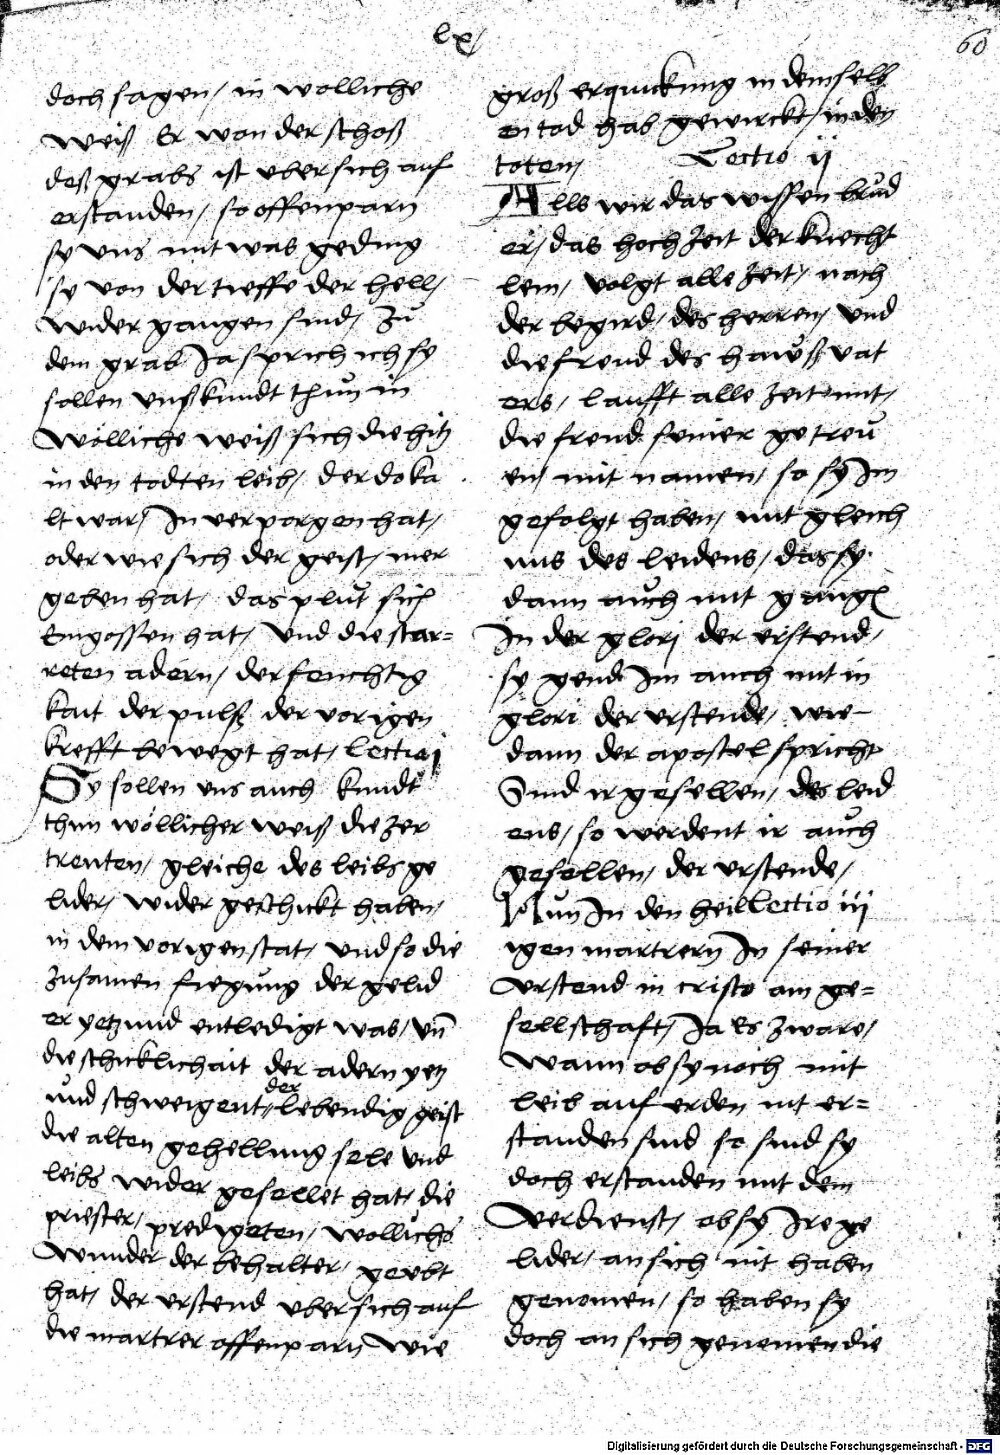 lx/
60
doch sagen/ in wolliche
weiß Er won der schoß
deß grabs ist vbersich auf
erstanden/ so offenparn
sy vns mit was geding
sy von der tieffe der hell/
wider gangen sind/ Zů
dem grab Ja sprich ich sy
sollen vnß kundt thun in
wölliche weiß sich die hitz
in den todten leib/ der do ka
lt war/ In verporgen hat/
oder wie sich der geist/ wider
geben hat/ das plůt sich
Eingossen hat/ vnd die star=
reten adern/ der feuchtig
kait der pulß der vorigen
krefft bewegt hat/ Lectio j
Sy sollen vns auch kundt
thun wöllicher weiß die zer
trenten/ gleiche des leibs ge
lider/ wider geschickt haben/
in dem vorigen stat/ vnd so die
zusamen fuegung der gelid
er yetzund entledigt was/ vn̄
die schicklichait der adern yetz
und schweigent/ der lebendig geist
die alten gehellung sele vnd
leibs wider gesellet hat/ die
priester/ predigeten/ wöllichs
wunder der behalter/ geubt
hat/ der vrstend vbersich auf
die martrer offenparn wie
groß erquickung in demselb
en tod hab gewirckt/ in den
toten/ Lectio ij
Alls wir das wissen brůd
er/ das hochzeit der knecht
lein/ volgt alle zeit/ nach
der begird/ des herren/ vnd
die freud des hawß vat
ers/ laufft alle zeit mit/
die freud seiner getreu
en/ mit namen/ so sy Im
gefolgt haben/ mit gleich
nus des leidens/ das sy
dann auch mit gangē
In der glori der erstend/
sy gend Im auch mit in
glori der vrstende/ wie
dann der apostel spricht
Sind ir gesellen/ des leid
ens/ so werdent ir auch
gesellen/ der vrstende/
Nun In den heil Lectio iij
igen martrern In seiner
vrstend in cristo ain ge=
sellschaft/ Ja Es zware/
wann ob sy noch mit
leib auf erden nit er=
standen sind so sind sy
doch erstanden mit dem
verdienst/ ob sy Ire ge
lider/ an sich nit haben
genomen/ so haben sy
doch an sich genomen die
Digitalisierung gefördert durch die Deutsche Forschungsgemeinschaft - DFG